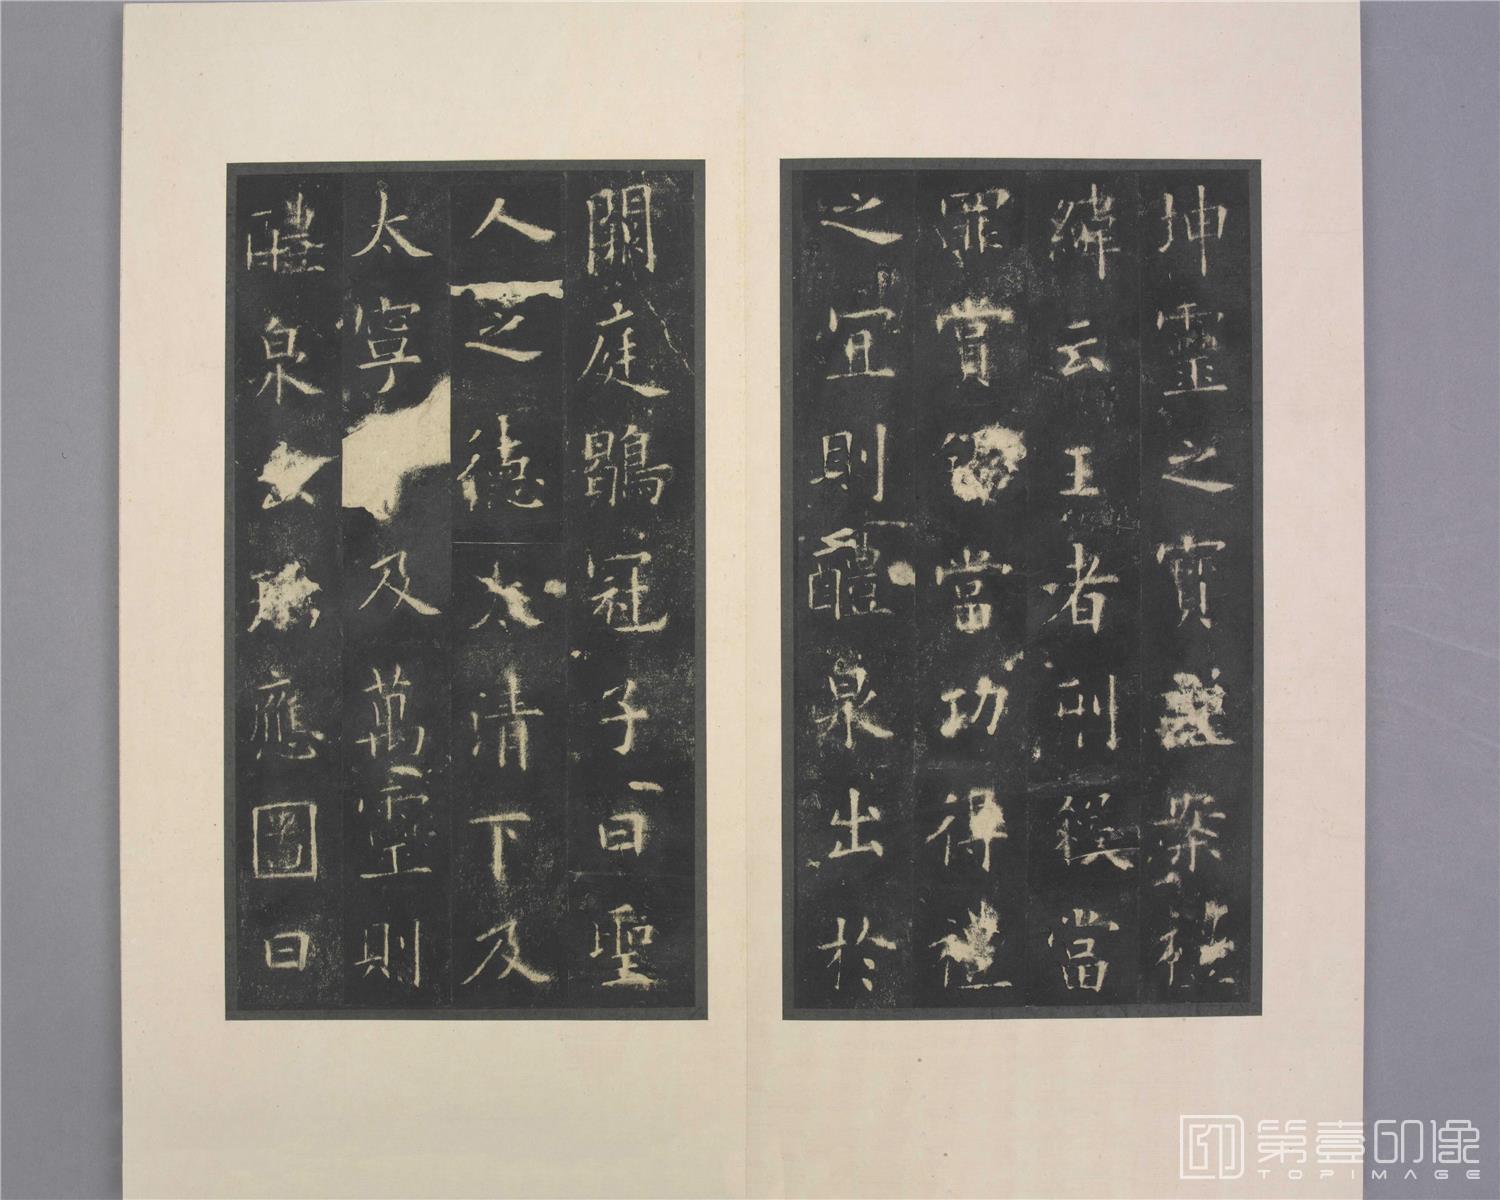 坤靈之寶謹案禮
緯云王者刑殺當
罪賞錫當功得禮
之宜則醴泉出於
闕庭鶡冠子曰聖
人之德太清下及
太寧及萬靈則
醴泉瑞應圖曰
第壹印像
TOPIMAGE